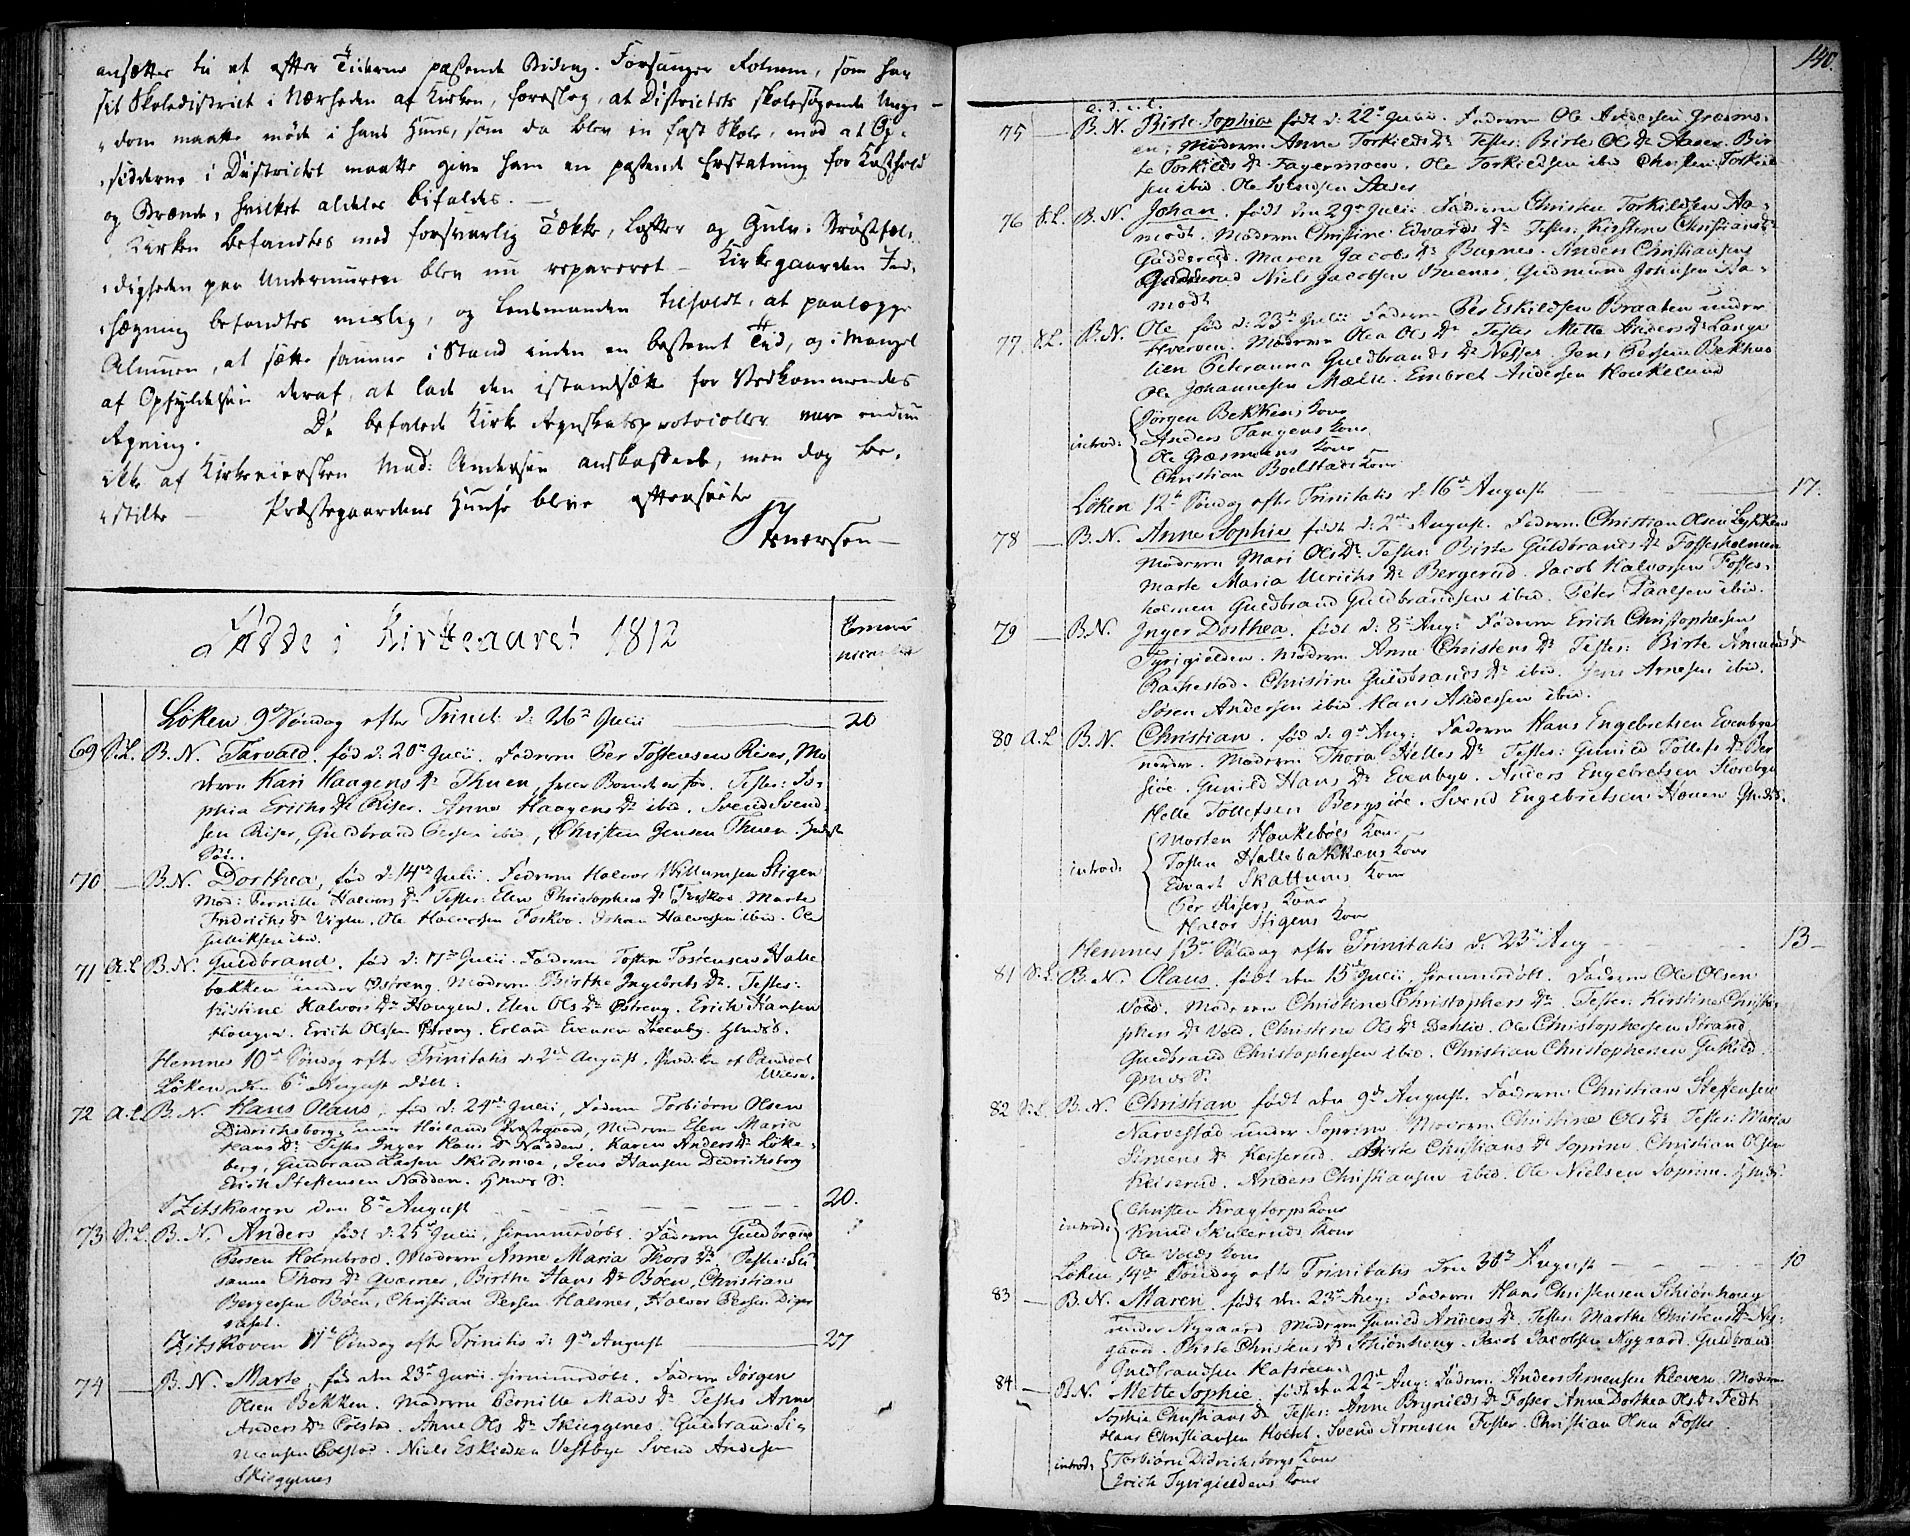 ansætte til et efter Tiderne passende Bidrag. Forsanger Folman, som har
sit Skoledistrict i Nærheden af Kirken, foreslog, at Districtets skolesøgende Ung-
dom maatte møde i hans Huus, som da blev en fast Skole, mod at Op-
sidderne i Districtet maatte give ham en passende Erstatning for Kosthold
og Brænde, hvilket aldeles bifaldes. —
Kirken befandtes med forsvarlig Tække, Lofter og Gulv: Brøstfæl-
digheden paa Undermuren blev nu repareret — Kirkegaardens Ind-
hægning befandtes mislig, og Lensmanden tilholdt, at paalægge
Almuen, at sætte samme i Stand inden en bestemt Tid, og i Mangel
af Opfyldelsen deraf, at lade den istandsætte for Vedkommendes
Regning. De befalede Kirke Regnskabsprotocoller vare endnu
ikke af Kirkeeiersken Mad: Andersen anskaffede, men dog be-
stilte — Præstegaardens Huuse blive efterseete
Iversen —
Fødde i Kirkeaaret 1812
Løken 9de Søndag efter Trinit: d: 26de Julii — 20
69 S.L. B.N. Tarvald, fød d: 20de Julii. Faderen Per Tostensen Riser, Mo-
deren Kari Haagens Dr Thuen, Tester: So-
phia Erichs Dr Riser. Anne Haagens Dr ibid. Svend Svend-
sen Riser, Guldbrand Persen ibid, Christen Jensen Thuen.
70 — B.N. Dorthea, fød d: 14de Julii. Faderen Halvor Willumsen Stigen
Mod: Pernille Halvors Dr Tester: Elen Christophers Dr Foskoe Marte
Fridrichs Dr Viglen. Ole Halvorsen Foskoe. Johan Halvorsen ibid. Ole
Gulliksen ibid.
71 A.L. B.N. Guldbrand, fød d: 17de Julii. Faderen Tosten Torersen Halle-
bækken under Østreng. Moderen Birthe Ingebrets Dr. Tester:
Kirstine Halvors Dr Haugen. Elen Ols Dr Østreng. Erich Hansen
Haugen. Erich Olsen Østreng. Erland Evensen Steenbg.
Hemnes 10de Søndag efter Trinitatis d: 2den August,
Løken den 6te August Døbt:
72 A.L. B.N. Hans Olaus, fød d: 24de Julii, Faderen Torbiørn Olsen
Didrichsborg under Høilands Præstegaard, Moderen Elen Maria
Hans Dr Tester Inger Hans Dr Nadden, Karen Anders Dr Løke-
berg, Guldbrand Larsen Skidsmoe, Jens Hansen Dedrichsborg
Erich Steffensen Nadden.
Zitskoven den 8de August — 20.
73 S.L. B.N. Anders født d: 25de Julii, hiemmedøbt. Faderen Guldbrand
Persen Holmbroe. Moderen Anne Maria Thors Dr Tester: Su-
sanne Thors Dr Qværnes, Birthe Hans Dr Bøen, Christian
Bergersen Bøen, Christian Persen Holsnes, Halvor Persen Diger
Zitskoven 11te Søndag efter Trinitis d: 9de August — 27
74 — B.N. Marte, fød den 23de Junii hiemmedøbt. Faderen Jørgen
Olsen Bekken. Moderen Pernille Mads Dr Testes Anne
Anders Dr Colstad. Anne Ols Dr Skieggenes. Guldbrand Si-
mensen Colstad. Niels Eskildsen Vestbye Svend Andersen
Skieggenes
140.
75 — B.N. Birte Sophia født d: 22de Julii. Faderen Ole Andersen Græsmo-
en; Moderen Anne Torkilds Dr Testes: Birte Ols Dr Aaser. Bir-
te Torkilds Dr Fagermoen. Ole Torkildsen ibid Christen Torkild-
sen ibid. Ole Svendsen Aaser
76 S.L. B.N. Johan, født den 29de Julii Faderen Christen Torkildsen Aa-
modt. Moderen Christine Edvards Dr Tester: Kirstine Christians Dr
Gadderud. Maren Jacobs Dr Buenes. Anders Christiansen
Gadderud Niels Jacobsen Buenes, Gudmund Johnsen Aa-
modt
77 S.L. B.N. Ole fød d: 23de Julii Faderen Per Eskildsen Braaten under
Hverven. Moderen Olea Ols Dr Testes Mette Anders Dr Lange-
lien Petranna Guldbrands Dr Nesset. Jens Persen Bekhus
Ole Johannesen Mælie. Embret Andersen Honkelund
introd: Jørgen Bekkens Kone
Anders Tangens Kone
Ole Græsmoens Kone
Christian Boelstads Kone
Løken 12te Søndag efter Trinitatis d: 16de August — 17.
78 — B.N. Anne Sophie født d: 2den August. Faderen Christian Olsen Lykken
Moderen Mari Ols Dr Testes: Birte Guldbrands Dr Fossesholmen
Marte Maria Ulrichs Dr Bergerud. Jacob Halvorsen Fosses-
holmen Guldbrand Guldbrandsen ibid. Peter Paalsen ibid.
79 — B.N. Inger Dorthea, født d: 8de Aug: Faderen Erich Christophersen
Tyrigielden. Moderen Anne Christens Dr Testes: Birte Amunds Dr
Rakkestad. Christine Guldbrands Dr ibid. Jens Arnesen ibid.
Søren Andersen ibid Hans Andersen ibid.
80 A.L B.N. Christian, fød d: 9de Aug: Faderen Hans Engebretsen Evenbye
nordre. Moderen Thora Helles Dr Testes: Gunild Tollefs Dr Ber-
siøe. Gunild Hans Dr Evenbye. Anders Engebretsen Skorebye
Helle Tollefsen Bergsiøe. Svend Engebretsen Hauen
introd: Morten Honkebøls Kone
Tosten Hallebækkens Kone
Edvart Skattums Kone
Per Risers Kone
Halvor Stigens Kone
Hemnes 13de Søndag efter Trinitatis d: 23de Aug — 13 —
81 S.L. B.N. Olaus, født den 15de Julii hiemmedøbt. Faderen Ole Olsen
Vold. Moderen Christine Christophers Dr. Testes: Kirstine Christo-
phers Dr Vold. Christine Ols Dr Dehlie. Ole Christophersen Strand
Guldbrand Christophersen ibid. Christian Christophersen
82 S.L. B.N. Christian født den 9de August. Faderen Christian Steffensen
Narvestad under Soprim. Moderen Christine Ols Dr Testes: Maria
Simens Dr Keiserud. Birte Christians Dr Soprim. Christian Olsen
Keiserud. Anders Christiansen ibid. Ole Nielsen Soprim.
introd: Christen Kragtorps Kone
Knud Skulleruds Kone
Ole Volds Kone
Løken 14de Søndag efter Trinitatis den 30de August — 10
83 — B.N. Maren, født den 23de Aug: Faderen Hans Christensen Schiønhoug
under Nygaard Moderen Gunild Anders Dr. Testes: Marthe Christens Dr Ny-
gaard. Birte Christens Dr Schiønhoug. Jacob Jacobsen Nygaard. Guldbrand
Guldbrandsen
84 — B.N. Mette Sophie, født den 22de Aug: Faderen Anders Simensen Kleven. Moderen
Sophia Christians Dr Testes: Anne Brynilds Dr Fosser Anne Dorthea Ols Dr Fedt
Hans Christiansen Holtet. Svend Arnesen Fosser. Christian Olsen Fosser
introd: Torbiørn Didrichsborgs Kone
Erich Tyrigieldens Kone